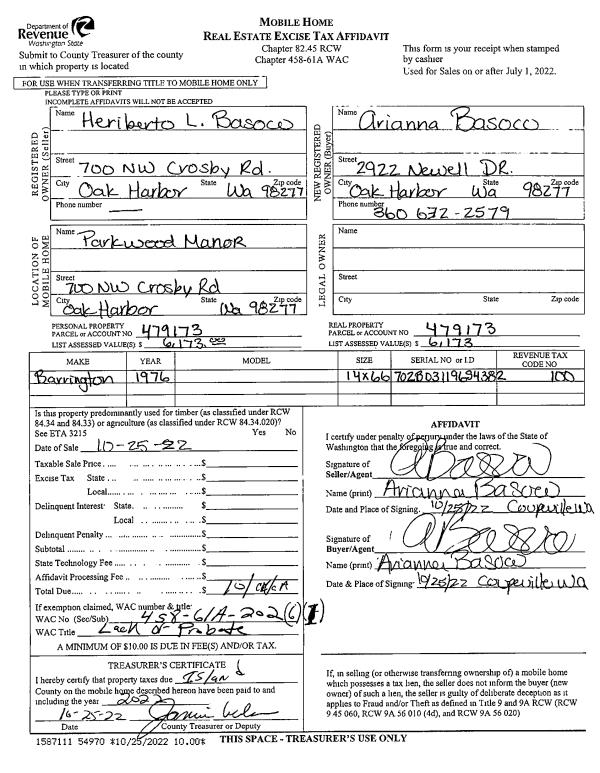 Department of
Revenue
Washington State
MOBILE HOME
REAL ESTATE EXCISE TAX AFFIDAVIT
Chapter 82.45 RCW
Chapter 458-61A WAC
Submit to County Treasurer of the county
in which property is located
This form is your receipt when stamped
by cashier
Used for Sales on or after July 1, 2022.
FOR USE WHEN TRANSFERRING TITLE TO MOBILE HOME ONLY
PLEASE TYPE OR PRINT
INCOMPLETE AFFIDAVITS WILL NOT BE ACCEPTED
REGISTERED OWNER (Seller)
Name Heriberto L. Basoco
Street 700 NW Crosby Rd.
City State Zip code
Oak Harbor Wa 98277
Phone number
NEW REGISTERED OWNER (Buyer)
Name Arianna Basoco
Street 2922 Newell DR.
City State Zip code
Oak Harbor Wa 98277
Phone number 360 632-2579
LOCATION OF MOBILE HOME
Name Parkwood Manor
Street 700 NW Crosby Rd
City State Zip code
Oak Harbor Wa 98277
LEGAL OWNER
Name
Street
City State Zip code
PERSONAL PROPERTY
PARCEL or ACCOUNT NO 479173
LIST ASSESSED VALUE(S) $ 6,173.00
REAL PROPERTY
PARCEL or ACCOUNT NO 479173
LIST ASSESSED VALUE(S) $ 6,173
MAKE YEAR MODEL SIZE SERIAL NO or I.D REVENUE TAX CODE NO
Barrington 1976 14x66 702BD3119694382 100
Is this property predominantly used for timber (as classified under RCW
84.34 and 84.33) or agriculture (as classified under RCW 84.34.020)?
See ETA 3215 Yes No
Date of Sale 10-25-22
Taxable Sale Price $
Excise Tax State $
Local $
Delinquent Interest: State $
Local $
Delinquent Penalty $
Subtotal $
State Technology Fee $
Affidavit Processing Fee $
Total Due $ 10/
If exemption claimed, WAC number & title:
WAC No (Sec/Sub) 458-61A-202(6)(
WAC Title Lack of Probate
A MINIMUM OF $10.00 IS DUE IN FEE(S) AND/OR TAX.
AFFIDAVIT
I certify under penalty of perjury under the laws of the State of
Washington that the foregoing is true and correct.
Signature of
Seller/Agent
Name (print) Arianna Basoco
Date and Place of Signing. 10/25/22 Coupeville Wa
Signature of
Buyer/Agent
Name (print) Arianna Basoco
Date & Place of Signing: 10/25/22 Coupeville Wa
TREASURER'S CERTIFICATE
I hereby certify that property taxes due
County on the mobile home described hereon have been paid to and
including the year 2022
10-25-22
Date County Treasurer or Deputy
If, in selling (or otherwise transferring ownership of) a mobile home
which possesses a tax lien, the seller does not inform the buyer (new
owner) of such a lien, the seller is guilty of deliberate deception as it
applies to Fraud and/or Theft as defined in Title 9 and 9A RCW (RCW
9 45 060, RCW 9A 56 010 (4d), and RCW 9A 56 020)
1587111 54970 *10/25/2022 10.00* THIS SPACE - TREASURER'S USE ONLY